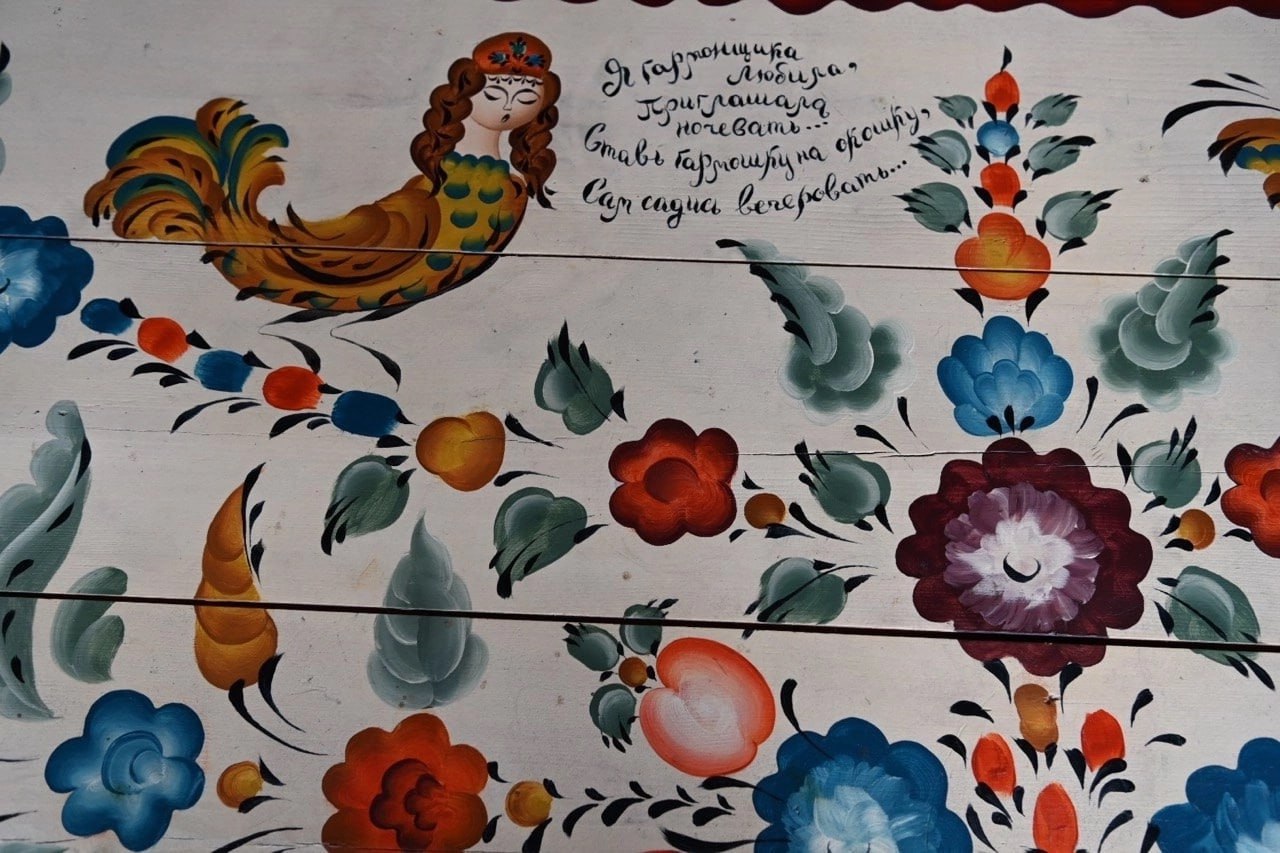 Я гармонщика
любила,
Приглашала
ночевать...
Ставь гармошку на окошку,
Сам садись вечеровать...